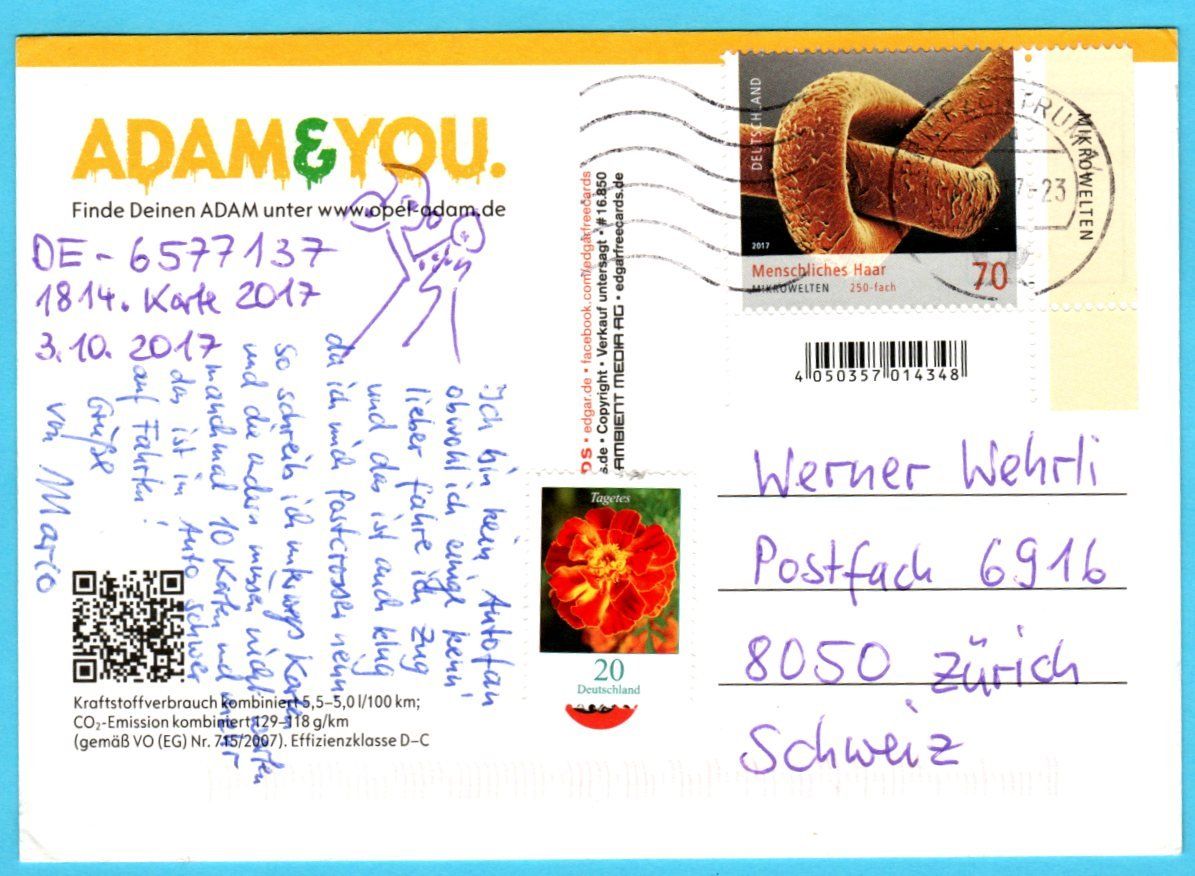 ADAM&YOU.
Finde Deinen ADAM unter www.opel-adam.de
DE-6577137
1814. Karte 2017
3.10. 2017
Ich bin kein Autofan
obwohl ich einige kenn'
lieber fahre ich Zug
und das ist auch klug
da ich mich Postcrosser nenn'
so schreib ich unterwegs Karten
und die andern müssen nicht warten
manchmal 10 Karten und mehr
das ist im Auto schwer
auf Fahrten!
Grüße
von Mario
Kraftstoffverbrauch kombiniert 5,5–5,0 l/100 km;
CO₂-Emission kombiniert 129–118 g/km
(gemäß VO (EG) Nr. 715/2007). Effizienzklasse D–C
DS • edgar.de • facebook.com/edgarfreecards
s.de • Copyright • Verkauf untersagt • # 16.850
AMBIENT MEDIA AG • edgarfreecards.de
DEUTSCHLAND
2017
Menschliches Haar
MIKROWELTEN 250-fach
70
MIKROWELTEN
23
4 050357 014348
Tagetes
20
Deutschland
Werner Wehrli
Postfach 6916
8050 Zürich
Schweiz